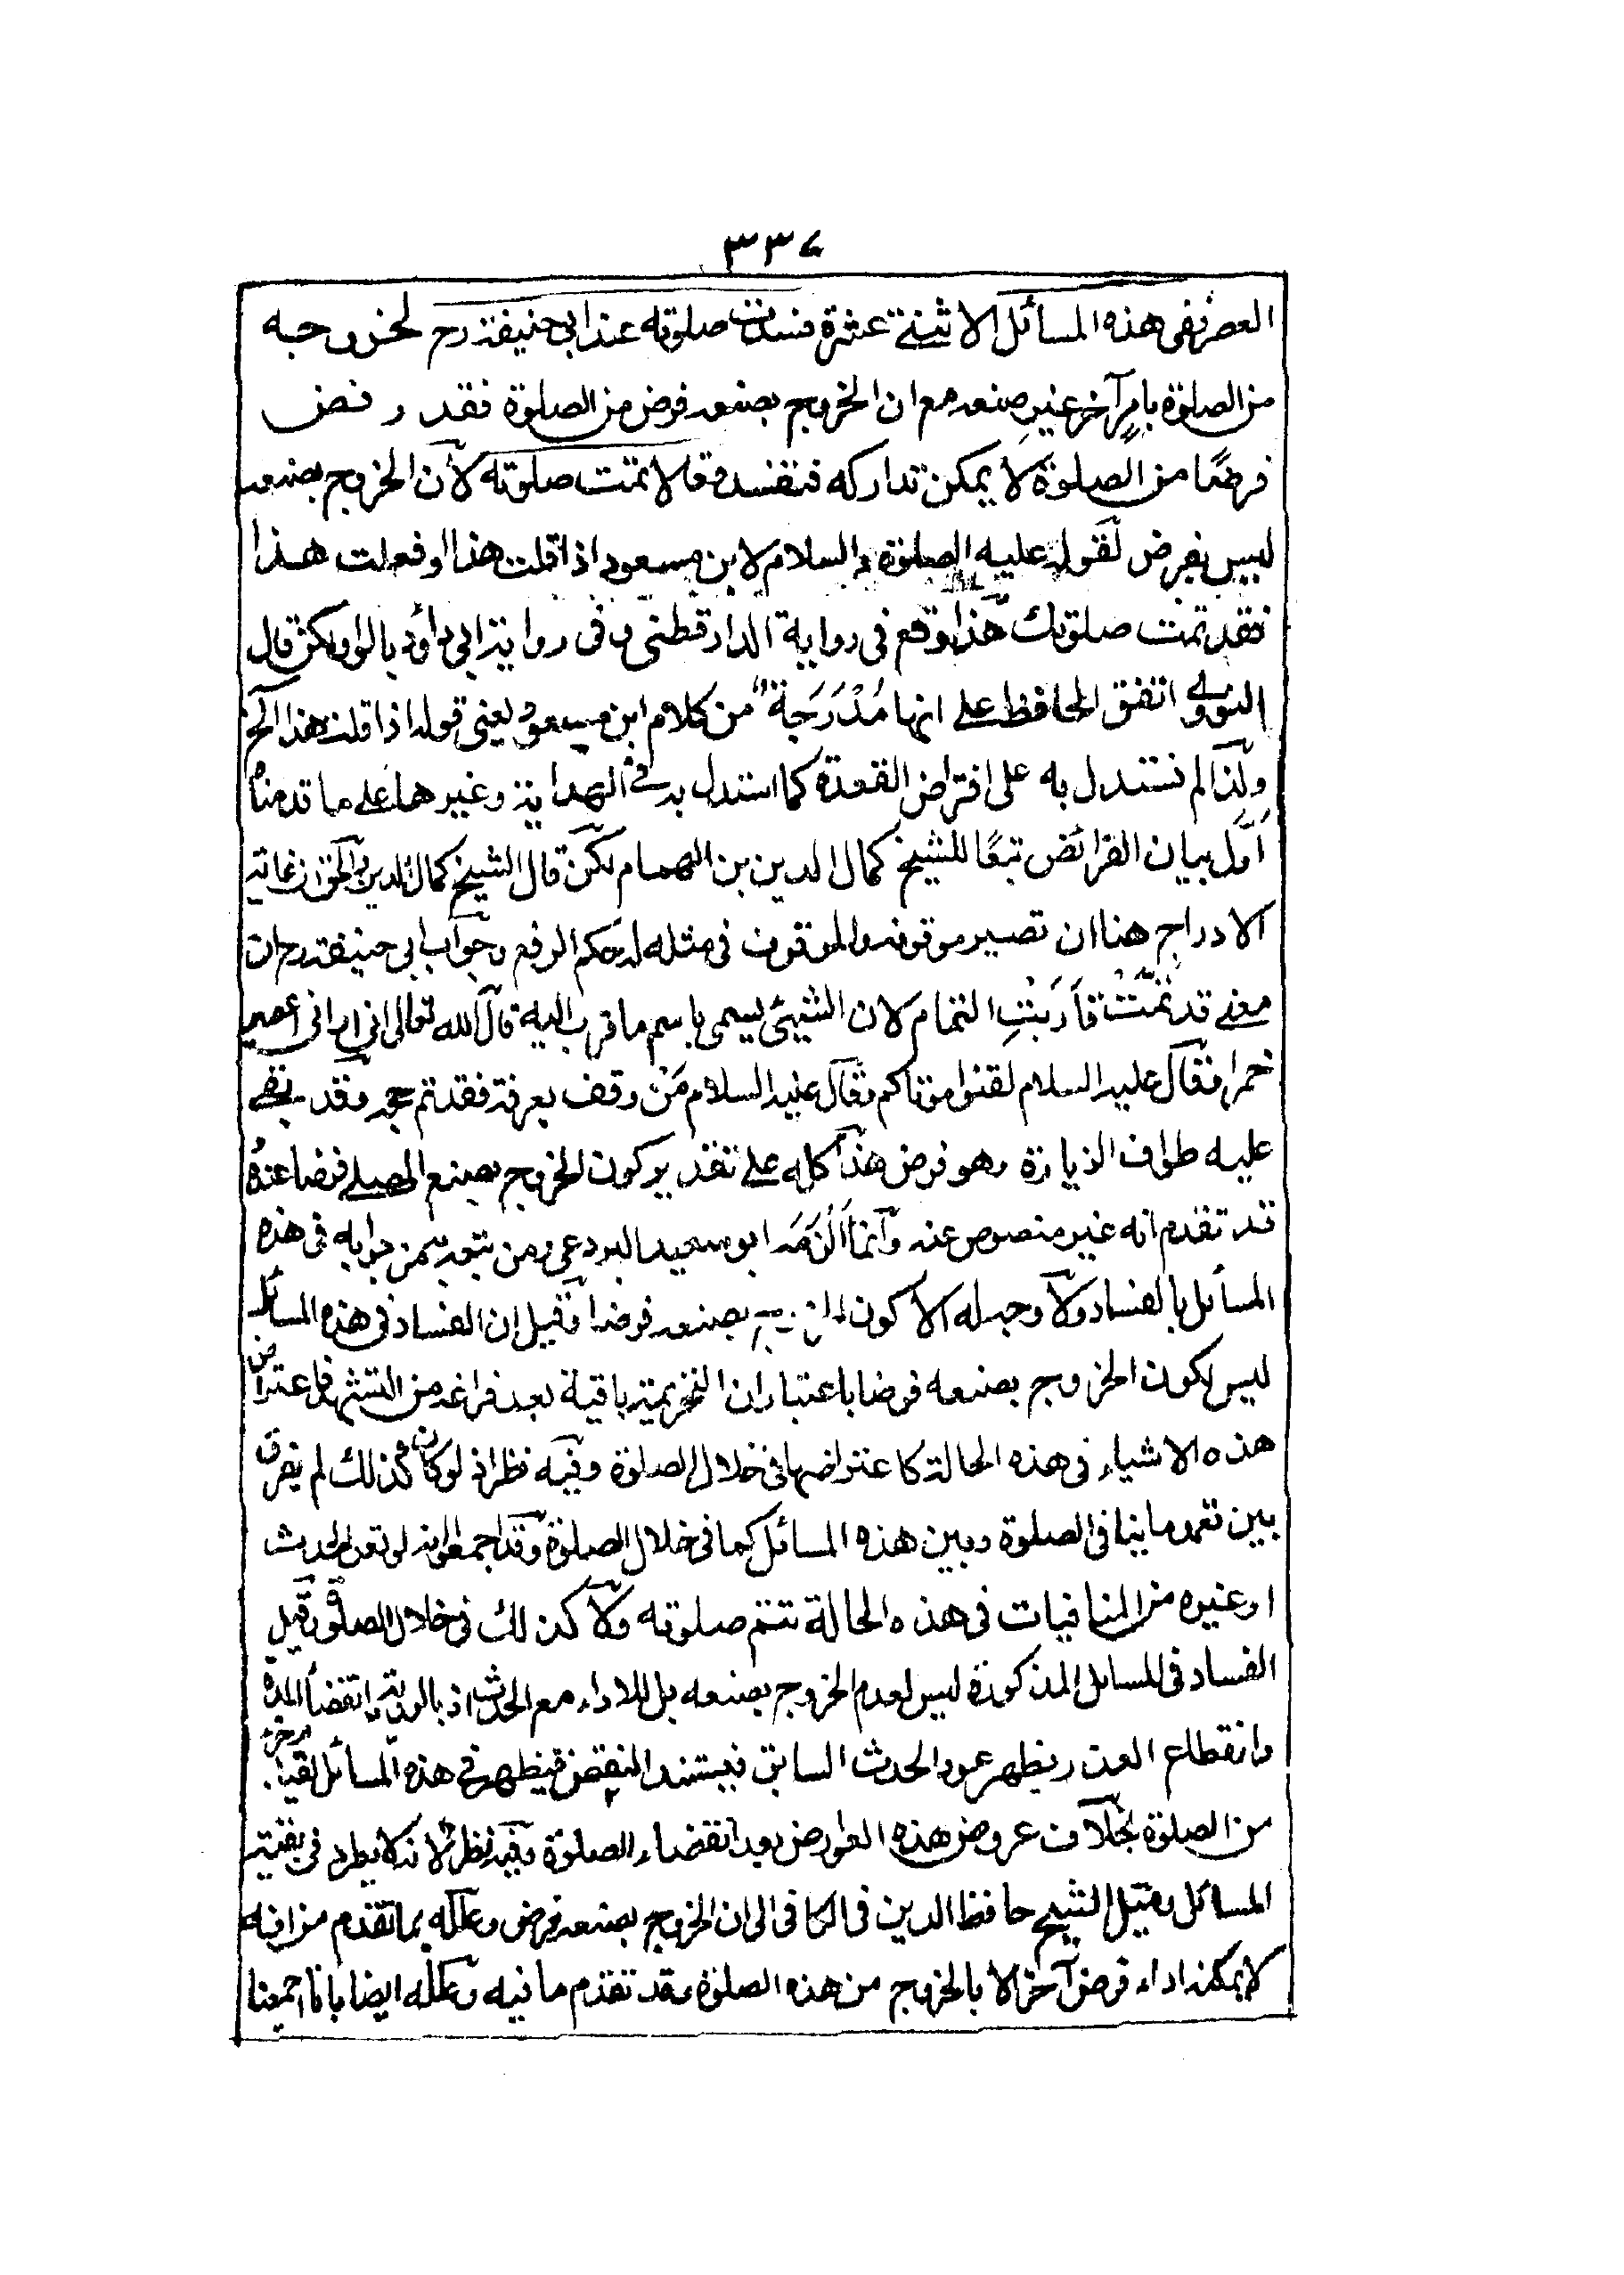 ٣٣٧
العصر ففى هذه المسائل الاثنتے عشرة فسدت صلوته عند ابى حنيفة رح لخروجه
من الصلوة بامر آخر غير صنعه مع ان الخروج بصنعه فرض من الصلوة فقد رفض
فرضًا من الصلوة لا يمكن تداركه فتفسد وقالا تمت صلوته لان الخروج بصنعه
ليس بفرض لقوله عليه الصلوة والسلام لابن مسعود اذا قلت هذا او فعلت هذا
فقد تمت صلوتك هذا وقع فى رواية الدارقطنى وفى رواية ابى داؤد بالواو لكن قال
النووى اتفق الحافظ علے انها مُدْرَجَة من كلام ابن مسعود يعنى قوله اذا قلت هذا الخ
ولذا لم نستدل به على افتراض القعدة كما استدل به فے الهداية وغيرها علے ما قدمنا
اَوّل بيان الفرائض تبعًا للشيخ كمال الدين بن الهمام لكن قال الشيخ كمال الدين والحق ان غاية
الادراج هنا ان تصير موقوفة والموقوف فى مثله له حكم الرفع وجواب ابى حنيفة رح ان
معنے قد تَمَّتْ قَارَبَتِ التمام لان الشيئ يسمى باسم ما قرب اليه قال الله تعالى انى ارانى اعصر
خمرا وقال عليه السلام لقنوا موتاكم وقال عليه السلام مَنْ وقف بعرفة فقد تم حجه وقد بقے
عليه طواف الزيارة وهو فرض هذا كله علے تقدير كون الخروج بصنع المصلے فرضا عنده
قد تقدم انه غير منصوص عنه وانما اَلْزَمَه ابو سعيد البردعى ومن تبعه من جوابه فى هذه
المسائل بالفساد ولا وجه له الا كون الخروج بصنعه فرضا وقيل ان الفساد فى هذه المسائل
ليس لكون الخروج بصنعه فرضا باعتبار ان التحريمة باقية بعد فراغه من التشهد فاعتراض
هذه الاشياء فى هذه الحالة كاعتراضها فى خلال الصلوة وفيه نظر اذ لو كان كذلك لم يفرق
بين تعمد ما ينافى الصلوة وبين هذه المسائل كما فى خلال الصلوة وقد اجمعوا انه لو تعمد الحدث
او غيره من المنافيات فى هذه الحالة تتم صلوته ولا كذلك فى خلال الصلوة وقيل
الفساد فى المسائل المذكورة ليس لعدم الخروج بصنعه بل للاداء مع الحدث اذ بالرؤية وانقضاء المدة
وانقطاع العذر يظهر عمود الحدث السابق فيستند النقض فيظهر فى هذه المسائل لقيام جزء
من الصلوة بخلاف عروض هذه العوارض بعد انقضاء الصلوة وفيه نظر لانه لا يطرد فى بقية
المسائل وميل الشيخ حافظ الدين فى الكافى الى ان الخروج بصنعه فرض وعلله بما تقدم من انه
لا يمكنه اداء فرض آخر الا بالخروج من هذه الصلوة وقد تقدم ما فيه وعلله ايضا بانا اجمعنا